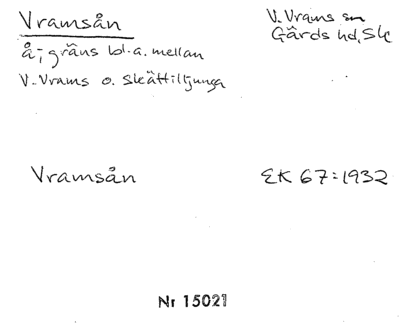 Vramsån
V. Vrams sn
Gärds hd, Sk
å; gräns bl.a. mellan
V. Vrams o. Skättiljunga
Vramsån
EK 67:1932
Nr 15021